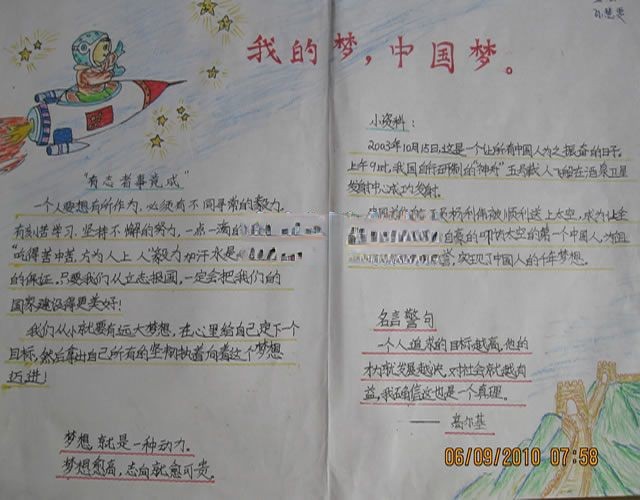 我的梦，中国梦。
"有志者事竟成"
一个人要想有所作为，必须有不同寻常的毅力。
有刻苦学习，坚持不懈的努力，一点一滴的
"吃得苦中苦，方为人上人"毅力加汗水是
的保证，只要我们从立志报国，一定会把我们的
国家建设得更美好！
我们从小就要有远大梦想，在心里给自己定下一个
目标，然后拿出自己所有的坚韧执着向着这个梦想
迈进！
梦想就是一种动力。
梦想愈高，志向就愈可贵。
小资料：
2003年10月15日，这是一个让所有中国人为之振奋的日子。
上午9时，我国自行研制的"神舟"五号载人飞船在酒泉卫星
发射中心成功发射。
杨利伟被顺利送上太空，成为让全
叩访太空的第一个中国人，为祖
，实现了中国人的千年梦想。
名言警句
一个人追求的目标越高，他的
才能就发展越快，对社会就越有
益，我确信这也是一个真理。
——高尔基
06/09/2010 07:58